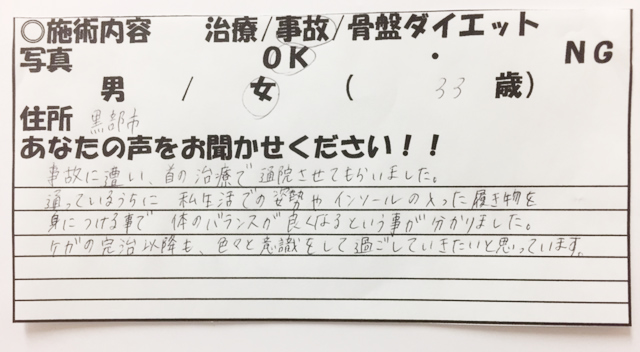 ○施術内容 治療/事故/骨盤ダイエット
写真 OK ・ NG
男 / 女 ( 33 歳)
住所 黒部市
あなたの声をお聞かせください!!
事故に遭い、首の治療で通院させてもらいました。
通っているうちに 私生活での姿勢やインソールの入った履き物を
身につける事で 体のバランスが良くなるという事が分かりました。
ケガの完治以降も、色々と意識をして過ごしていきたいと思っています。